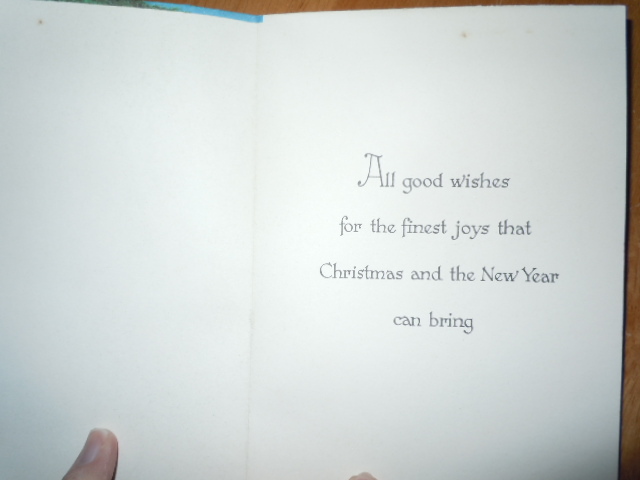 All good wishes
for the finest joys that
Christmas and the New Year
can bring